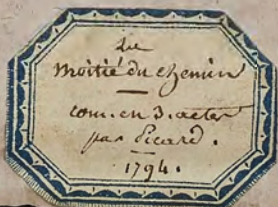 La
moitié du chemin
com. en 3. actes
par Picard.
1794.